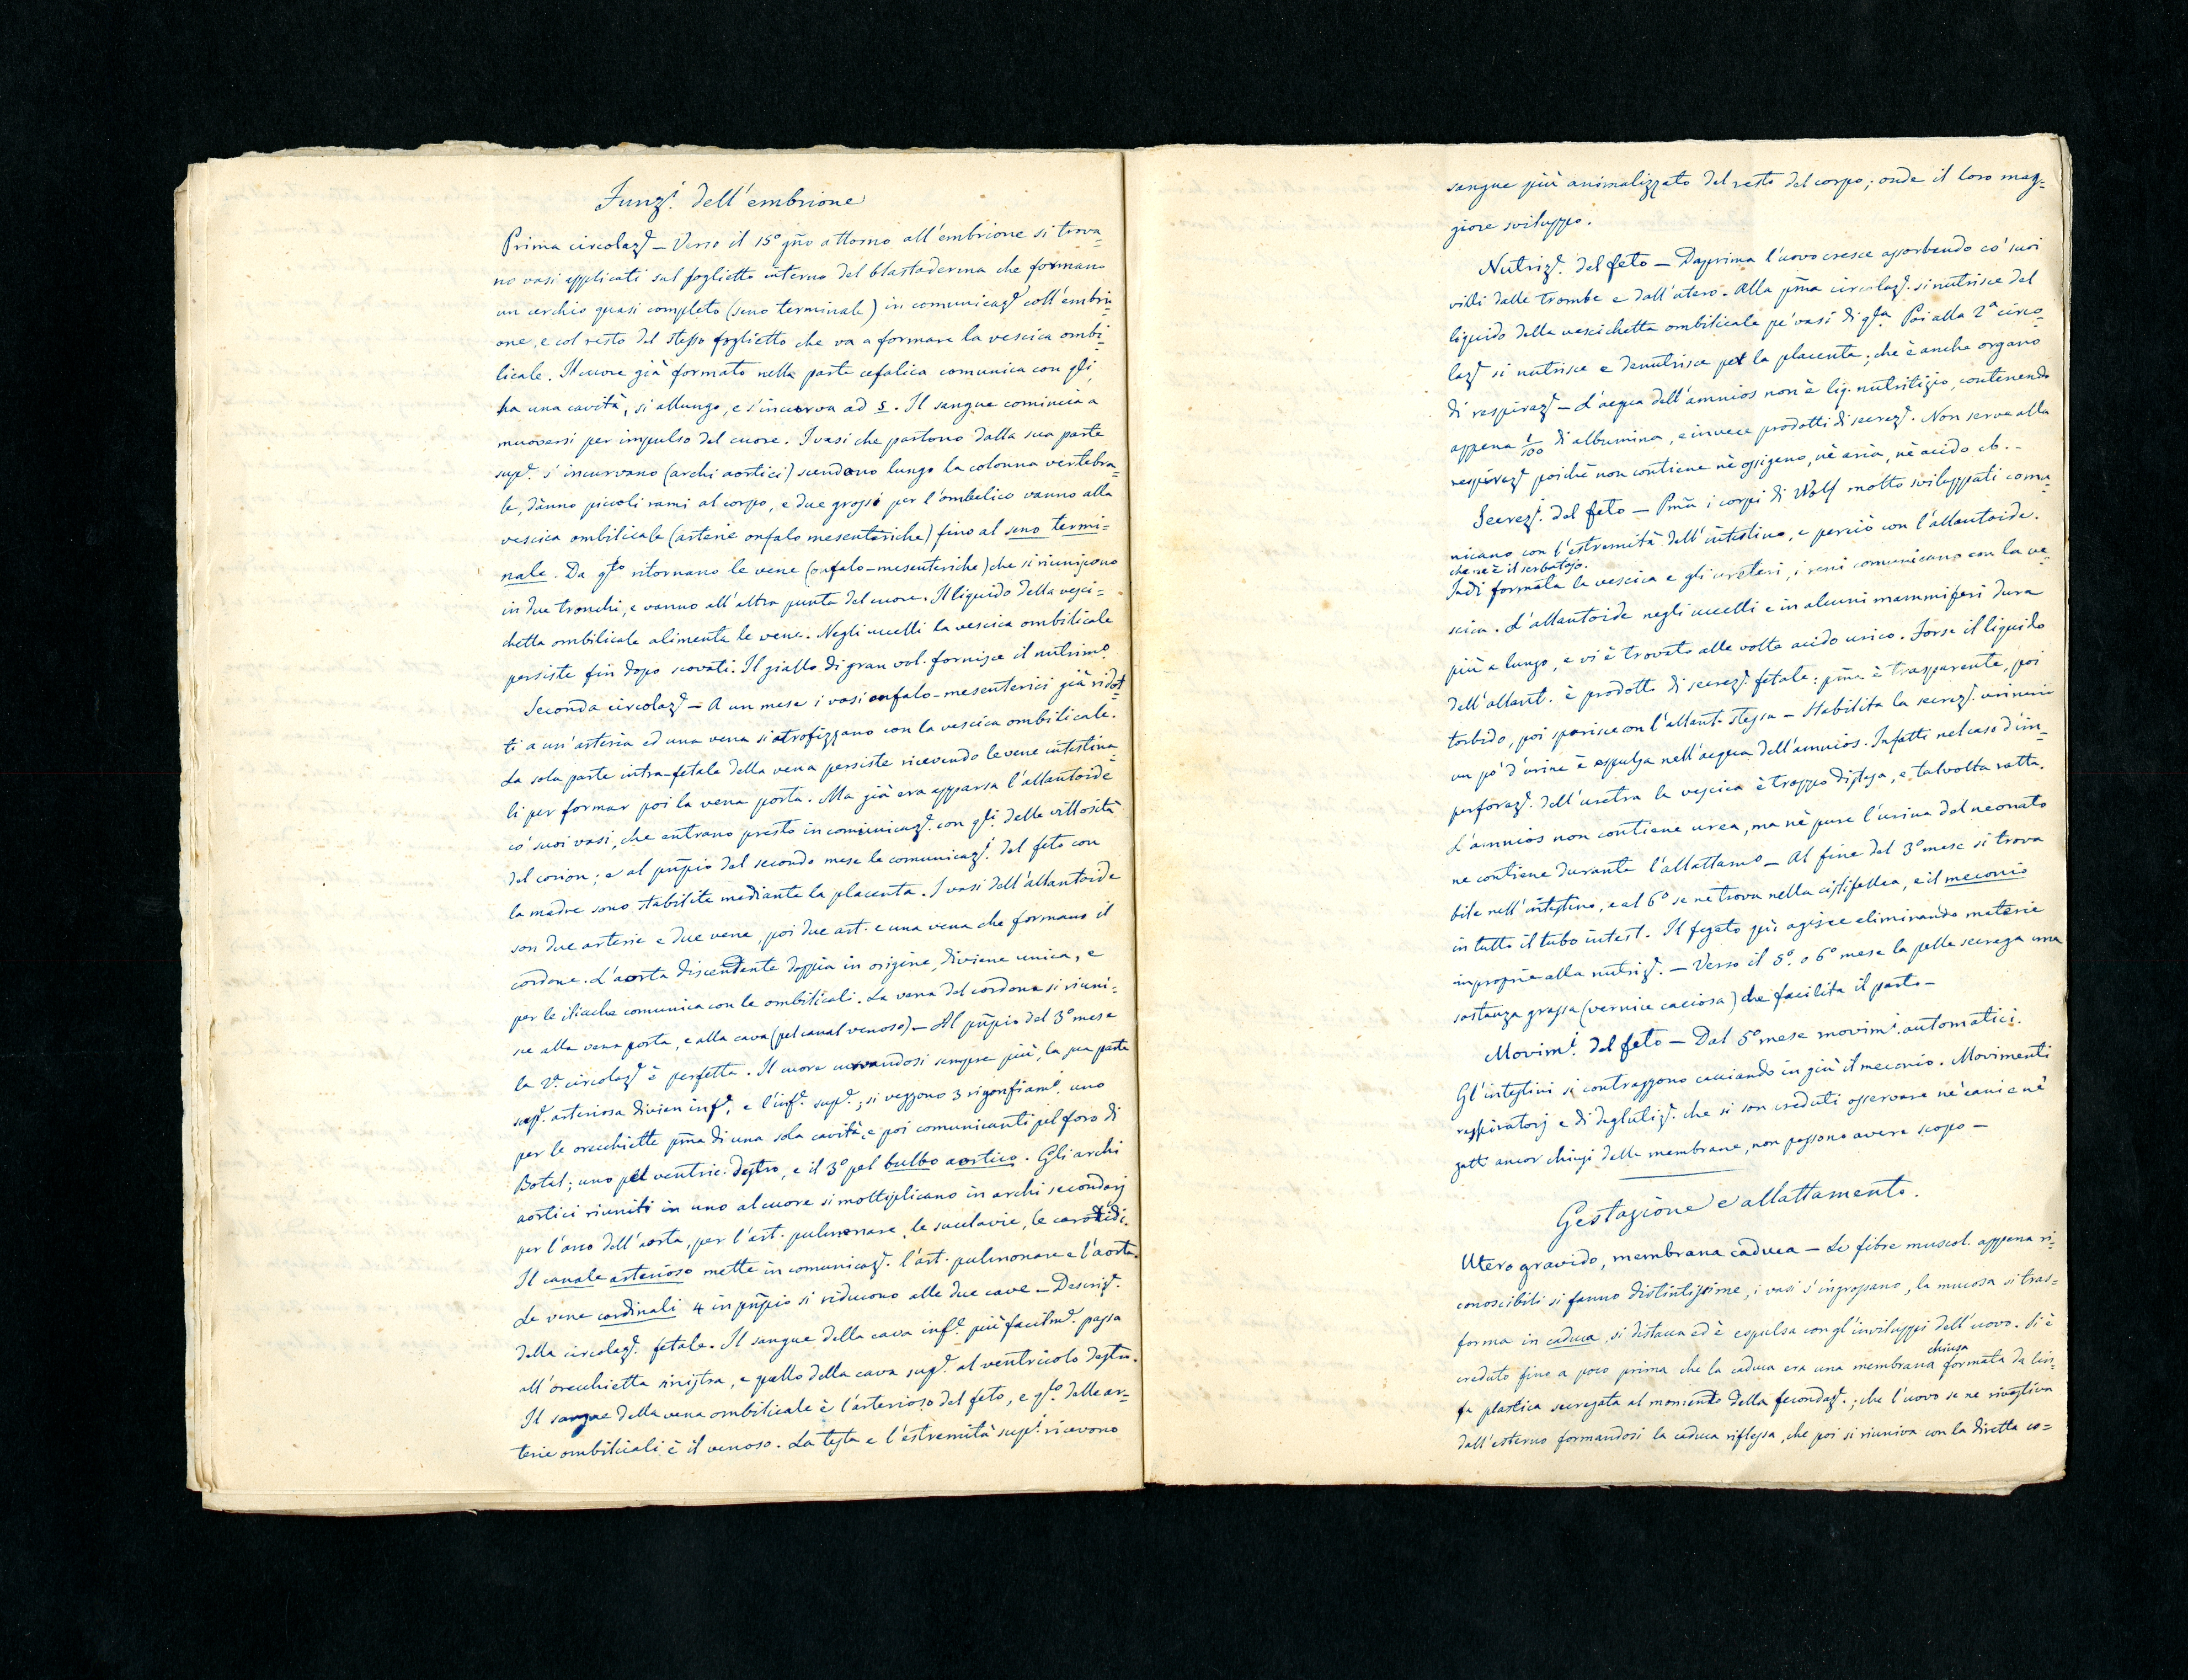 Funzi. dell'embrione
Prima circolaze. — Verso il 15º gño attorno all'embrione si trova=
no vasi applicati sul foglietto interno del blastoderma che formano
un cerchio quasi completo (seno terminale) in comunicaze. coll'embri=
one, e col resto del stesso foglietto che va a formare la vescica ombi=
licale. Il cuore già formato nella parte cefalica comunica con qli,
ha una cavità, si allunga, e s'incurva ad s. Il sangue comincia a
muoversi per impulso del cuore. I vasi che partono dalla sua parte
supe. s'incurvano (archi aortici) scendono lungo la colonna vertebra=
le, dànno piccoli rami al corpo, e due grossi per l'ombelico vanno alla
vescica ombilicale (arterie onfalo mesenteriche) fino al seno termi=
nale. Da qto ritornano le vene (onfalo-mesenteriche) che si riuniscono
in due tronchi, e vanno all'altra punta del cuore. Il liquido della vesci=
chetta ombilicale alimenta le vene. Negli uccelli la vescica ombilicale
persiste fin dopo scovati. Il giallo di gran vol. fornisce il nutrimo.
Seconda circolaze. — A un mese i vasi onfalo-mesenterici già ridot=
ti a un'arteria ed una vena si atrofizzano con la vescica ombilicale.
La sola parte intra-fetale della vena persiste ricevendo le vene intestina=
li per formar poi la vena porta. Ma già era apparsa l'allantoide
co' suoi vasi, che entrano presto in comunicaze. con qli. delle villosità
del corion; e al pñpio del secondo mese le comunicazi. del feto con
la madre sono stabilite mediante la placenta. I vasi dell'allantoide
son due arterie e due vene, poi due art. e una vena che formano il
cordone. L'aorta discendente doppia in origine, diviene unica, e
per le iliache comunica con le ombilicali. La vena del cordone si riuni=
sce alla vena porta, e alla cava (pel canal venoso) — Al pñpio del 3º mese
la 2a. circolaze. è perfetta. Il cuore curvandosi sempre più, la sua parte
supe. arteriosa divien infe. e l'infe. supe.; si veggono 3 rigonfiami. uno
per le orecchiette pma di una sola cavità, e poi comunicanti pel foro di
Botal; uno pel ventric. destro, e il 3º pel bulbo aortico. Gli archi
aortici riuniti in uno al cuore si moltiplicano in archi secondarj
per l'arco dell'aorta, per l'art. pulmonare, le succlavie, le carotidi.
Il canale arterioso mette in comunicaze. l'art. pulmonare e l'aorta.
Le vene cardinali 4 in pñpio si riducono alle due cave — Descrize.
della circolaze. fetale. Il sangue della cava infe. più facilme. passa
all'orecchietta sinistra, e quello della cava supe. al ventricolo destro.
Il sangue della vena ombilicale è l'arterioso del feto, e qto. delle ar=
terie ombilicali è il venoso. La testa e l'estremità supi. ricevono
sangue più animalizzato del resto del corpo; onde il loro mag=
giore sviluppo.
Nutrize. del feto — Dapprima l'uovo cresce assorbendo co' suoi
villi dalle trombe e dall'utero. Alla pma circolaze. si nutrisce del
liquido della vescichetta ombilicale pe' vasi di qta. Poi alla 2a circo=
laze. si nutrisce e denutrisce per la placenta; che è anche organo
di respiraze. — L'acqua dell'amnios non è liq. nutritizio, contenendo
appena 1/100 di albumina, e invece prodotti di secreze. Non serve alla
respiraze. poiché non contiene nè ossigeno, nè aria, nè acido cb. —
Secreze. del feto — Pma i corpi di Wolf molto sviluppati comu=
nicano con l'estremità dell'intestino, e perciò con l'allantoide.
che ne è il serbatojo.
Indi formata la vescica e gli ureteri, i reni comunicano con la ve=
scica. L'allantoide negli uccelli e in alcuni mammiferi dura
più a lungo, e vi è trovato alle volte acido urico. Forse il liquido
dell'allant. è prodotto di secreze. fetale: pma è trasparente, poi
torbido, poi sparisce con l'allant. stessa — Stabilita la secreze. urinaria
un po' d'urina è espulsa nell'acqua dell'amnios. Infatti nel caso d'im=
perforaze. dell'uretra la vescica è troppo distesa, e talvolta rotta.
L'amnios non contiene urea, ma nè pure l'urina del neonato
ne contiene durante l'allattamo. — Al fine del 3º mese si trova
bile nell'intestino, e al 6º se ne trova nella cistifellea, e il meconio
in tutto il tubo intest. Il fegato più agisce eliminando materie
improprie alla nutrize. — Verso il 5º o 6º mese la pelle secrega una
sostanza grassa (vernice caciosa) che facilita il parto —
Movimi. del feto — Dal 5º mese movimi. automatici.
Gl'intestini si contraggono cacciando in giù il meconio. Movimenti
respiratorj e di deglutize. che si son creduti osservare nè cani e nè
gatti ancor chiusi delle membrane, non possono avere scopo —
Gestazione e allattamento.
Utero gravido, membrana caduca — Le fibre muscol. appena ri=
conoscibili si fanno distintissime, i vasi s'ingrossano, la mucosa si tras=
forma in caduca, si distacca ed è espulsa con gl'inviluppi dell'uovo. Si è
chiusa
creduto fino a poco prima che la caduca era una membrana formata da lin=
fa plastica secregata al momento della fecondaze.; che l'uovo se ne rivestiva
dall'esterno formandosi la caduca riflessa, che poi si riuniva con la diretta co=